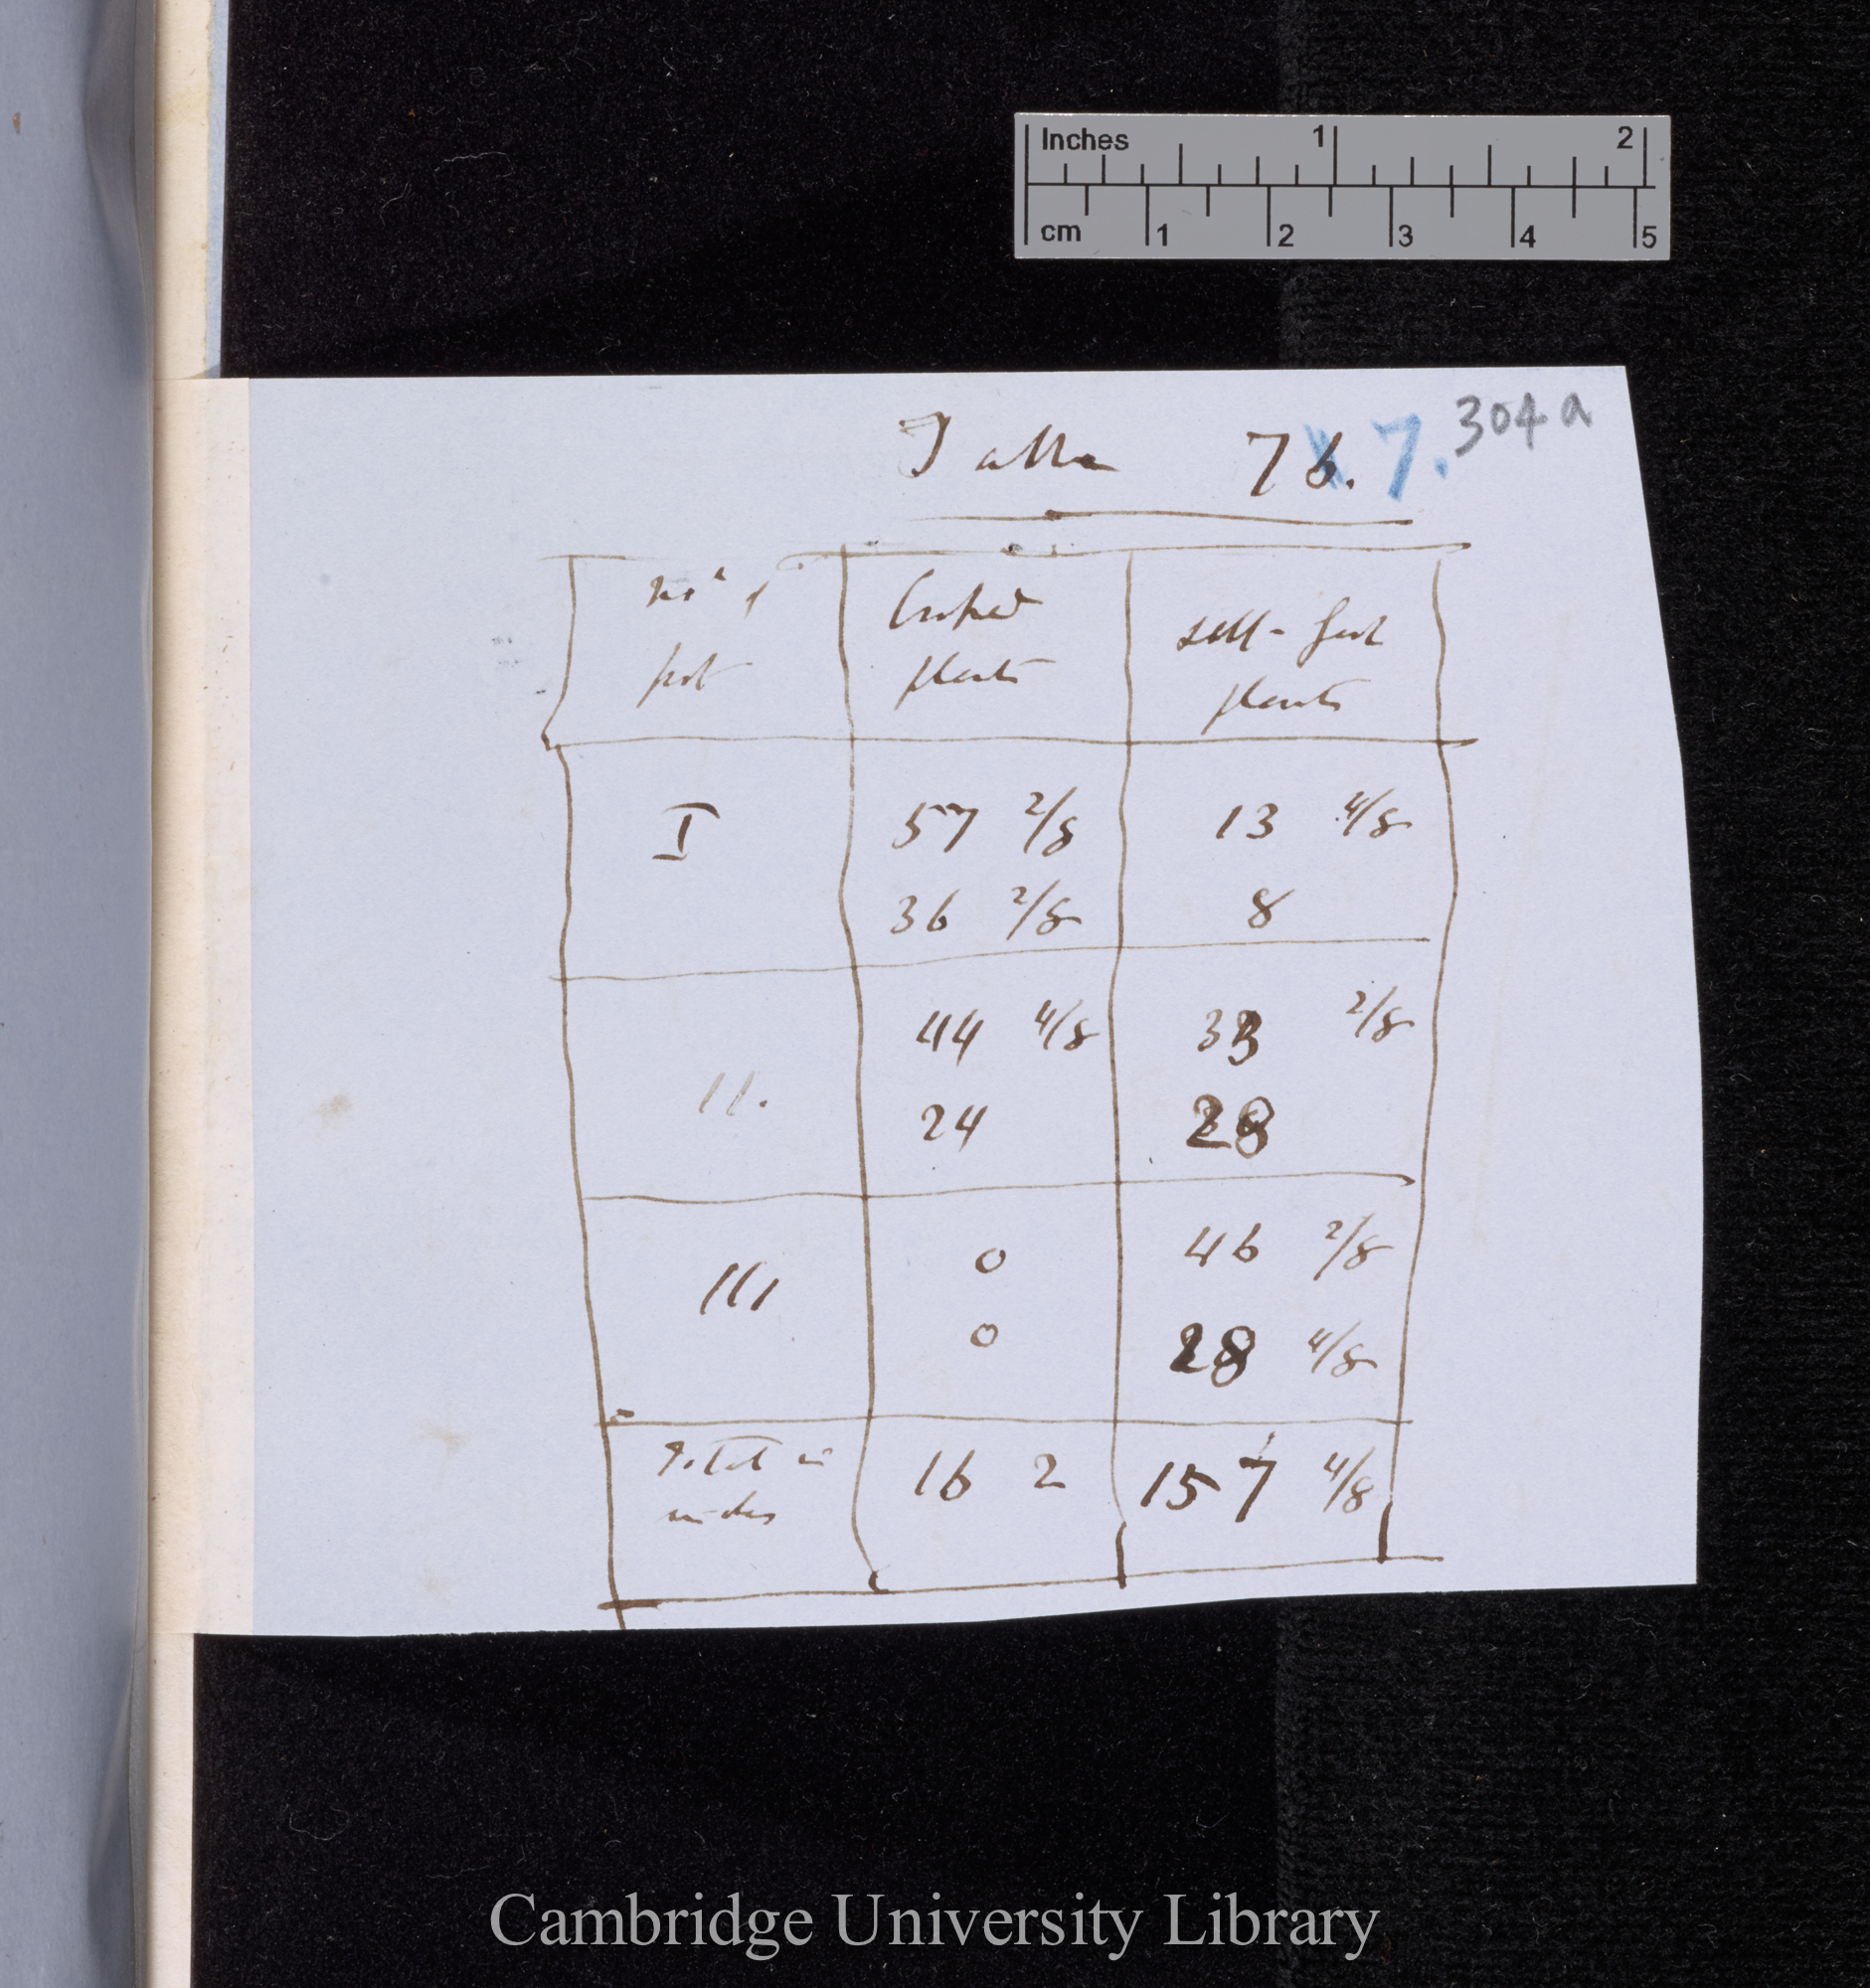 Inches 1 2
cm 1 2 3 4 5
304 a
Table 76. 7.
No. of Crossed self-fert
pot plants plants
I 57 2/8 13 4/8
36 2/8 8
44 4/8 33 2/8
II. 24 28
0 46 2/8
III
0 28 4/8
Total in 162 157 4/8
inches
Cambridge University Library